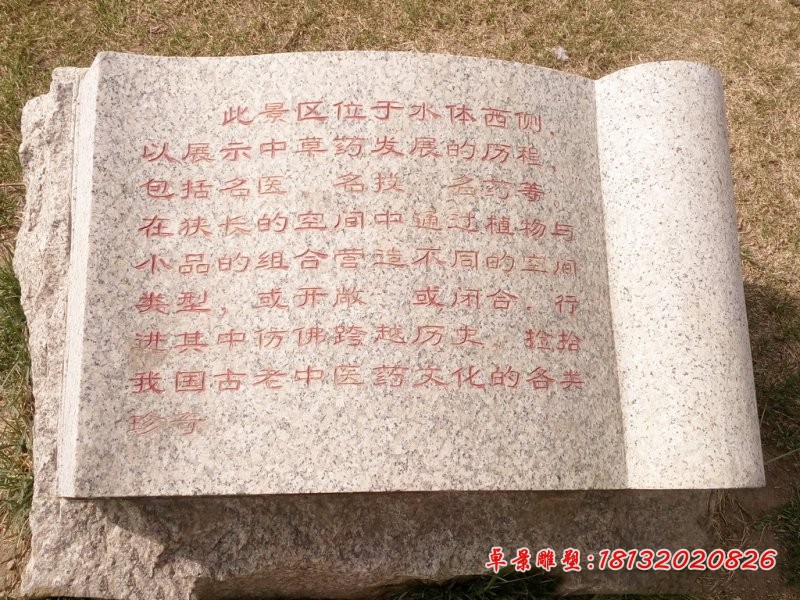 此景区位于水体西侧,
以展示中草药发展的历程,
包括名医 名技 名药等
在狭长的空间中通过植物与
小品的组合营造不同的空间
类型, 或开敞 或闭合, 行
进其中仿佛跨越历史, 捡拾
我国古老中医药文化的各类
珍奇
卓景雕塑:18132020826